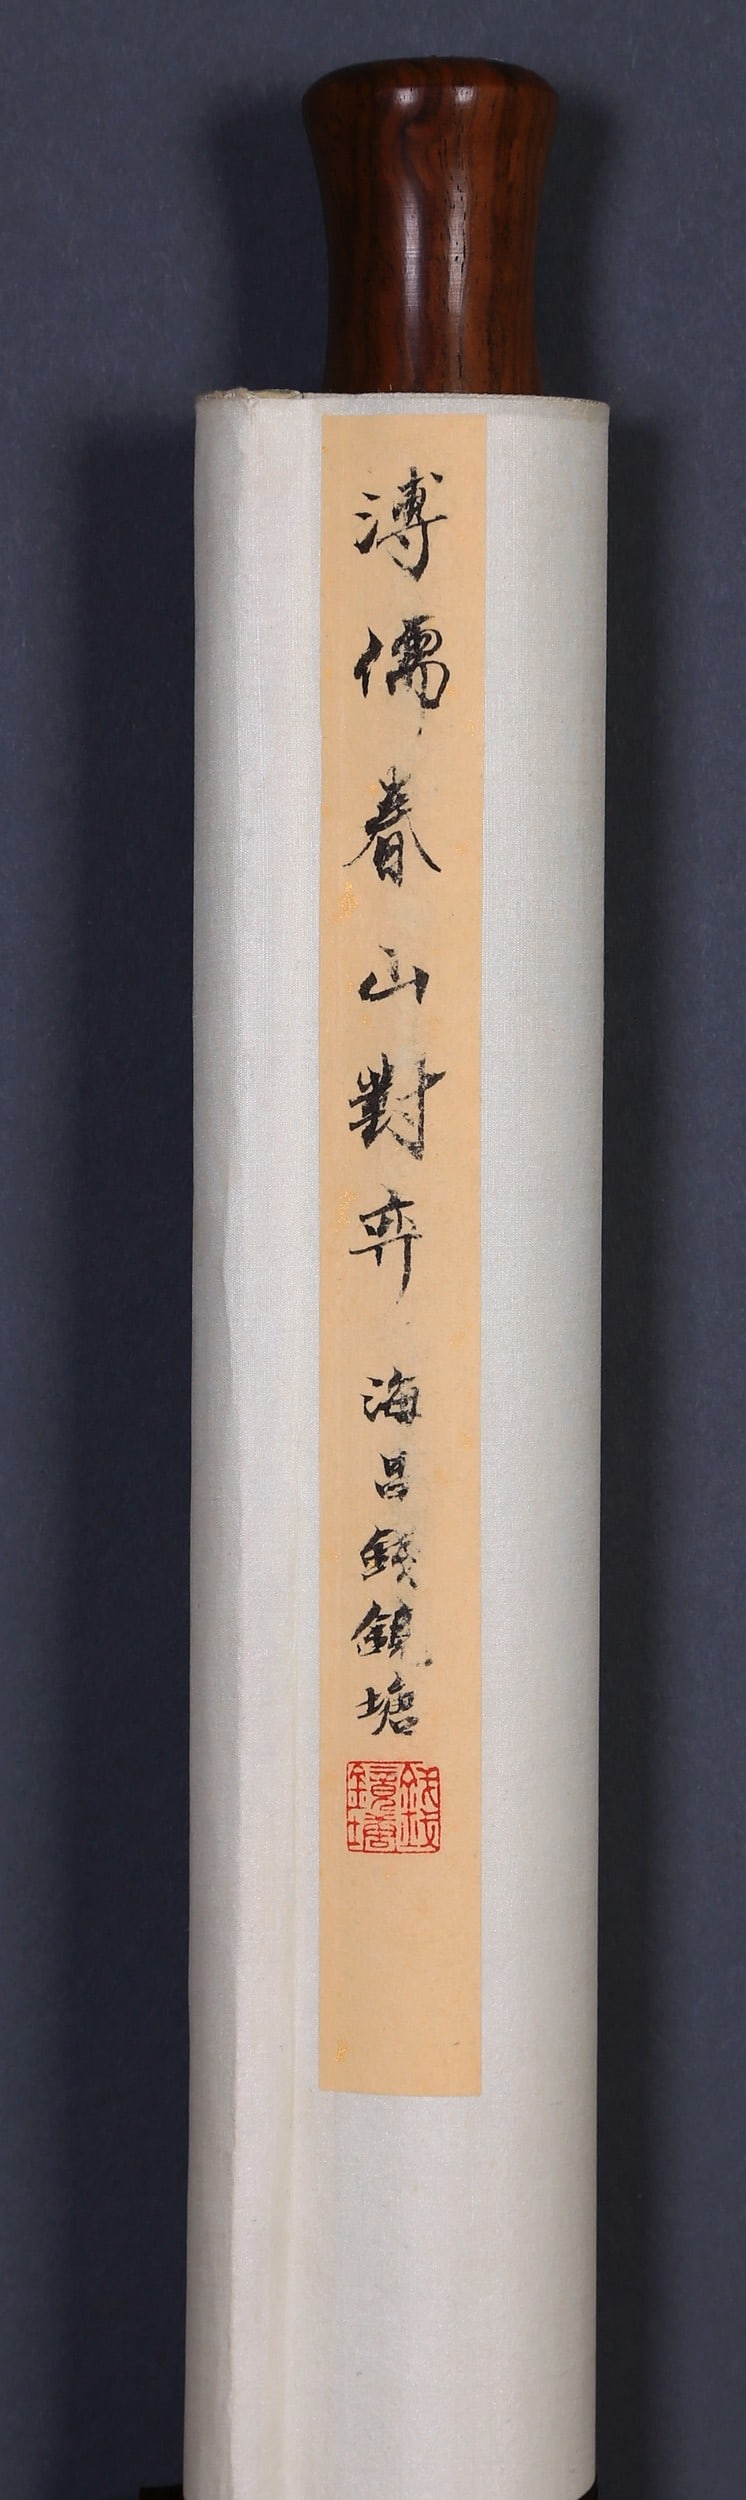 溥儒春山對弈 海昌錢鏡塘
錢鏡塘